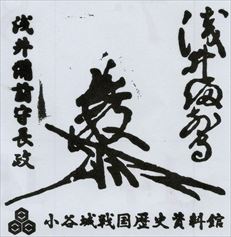 浅井備前守
浅井備前守長政
小谷城戦国歴史資料館